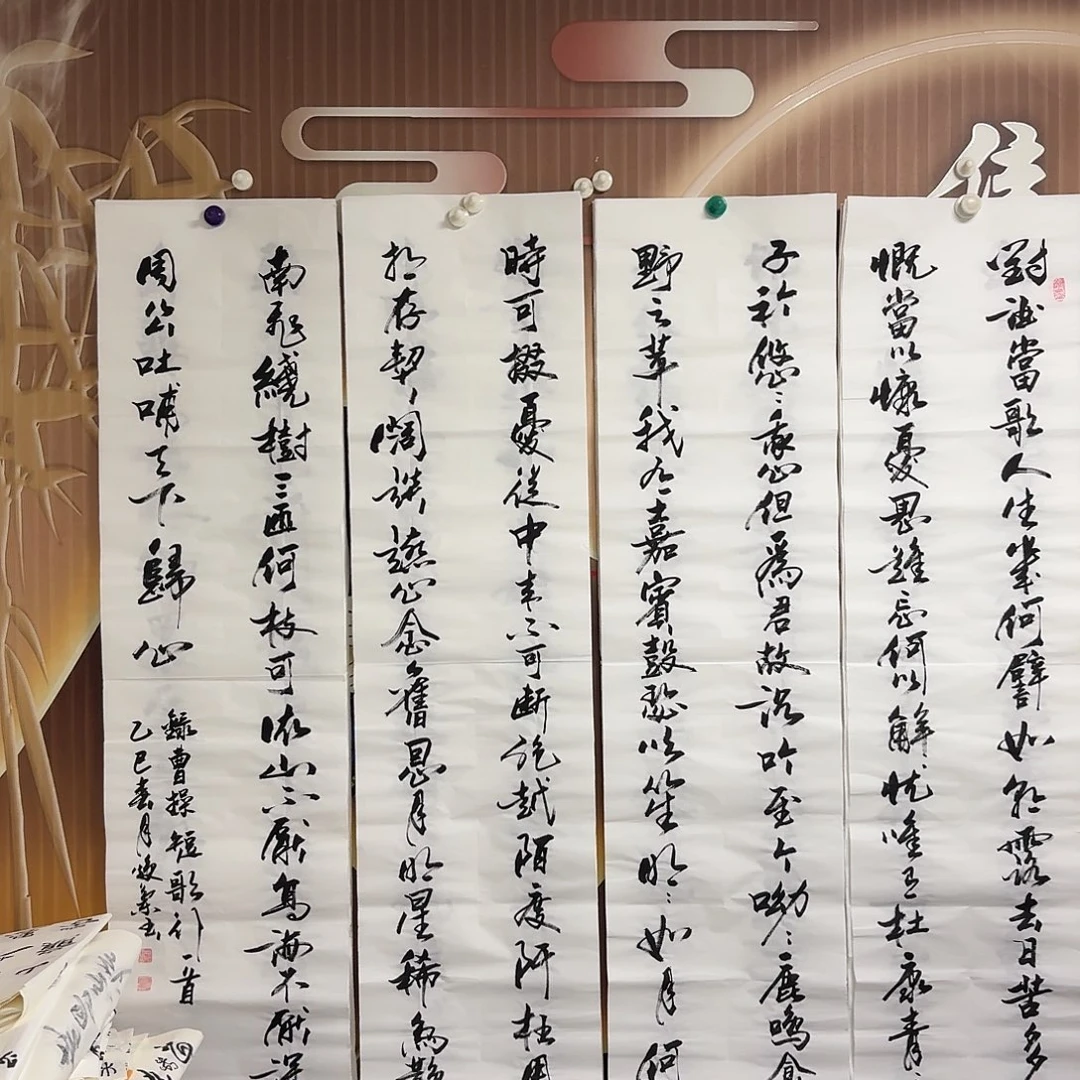 對酒當歌人生幾何譬如朝露去日苦多
慨當以慷憂思難忘何以解忧唯有杜康青:
子衿悠:我心但爲君故沉吟至今呦:鹿鳴食
野之苹我有嘉賓鼓瑟吹笙明:如月何
時可掇憂從中來不可斷越陌度阡枉用
相存契闊談讌心念舊恩月明星稀烏鵲
南飛繞樹三匝何枝可依山不厭高海不厭深
周公吐哺天下歸心
錄曹操短歌行一首
乙巳春月书